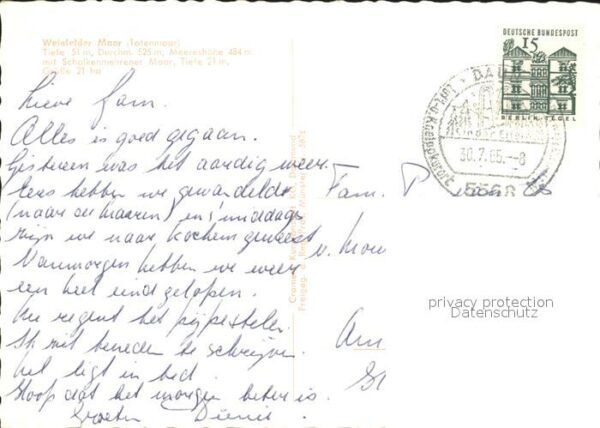 Weinfelder Maar (Totenmaar)
Tiefe 51 m, Durchm. 525 m, Meereshöhe 484 m
mit Schalkenmehrener Maar, Tiefe 21 m,
Größe 21 ha
Lieve Fam.
Alles is goed gegaan.
Gisteren was het aardig weer.
Eers hebben we gewandeld
(naar de Maaren) en 's middags
zijn we naar Kochem geweest
Vanmorgen hebben we weer
een heel eind gelopen.
Nu regent het pijpestelen.
Ik zit beneden te schrijven
ligt in bed.
Hoop dat het morgen beter is.
Groeten
DEUTSCHE BUNDESPOST
15
BERLIN-TEGEL
DAUN
30.7.65.-8
5568
Fam. P
v. Mou
Am
privacy protection
Datenschutz